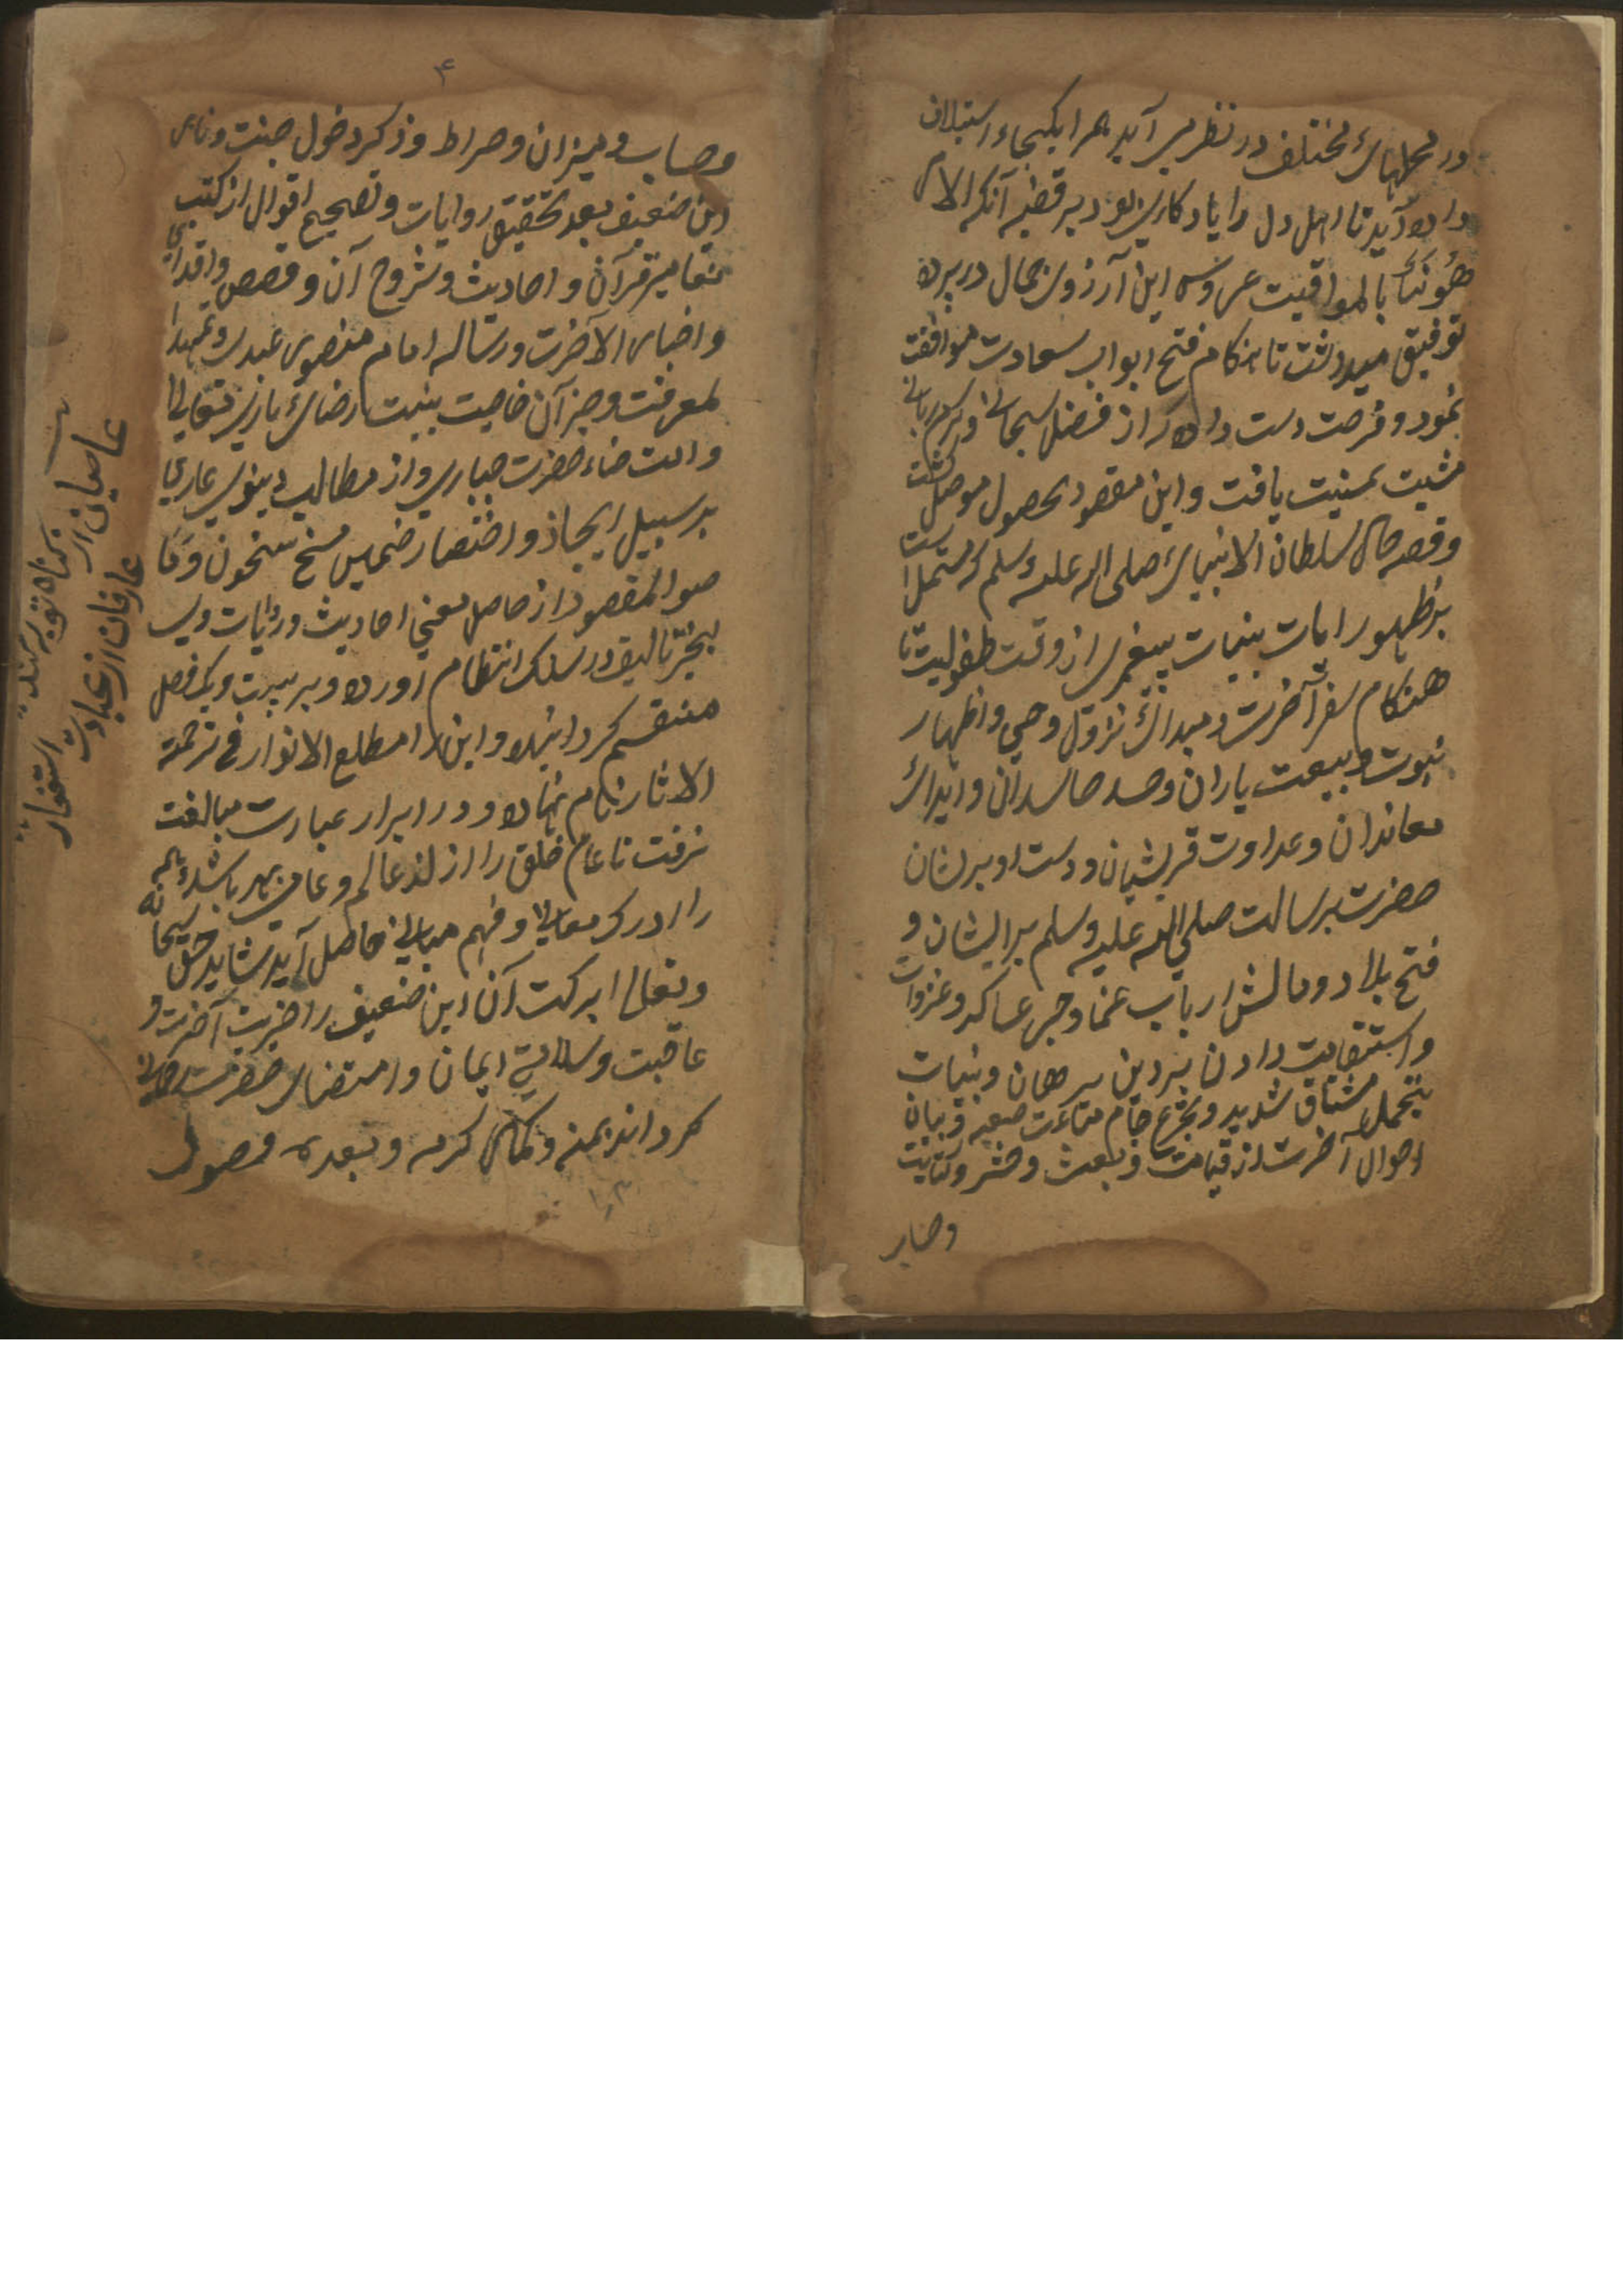 در محلهای مختلف در نظر می آید همرا یکجا استیلاف
داده آید تا اهل دل را یادکاری بود بر قضیه آنکه الامور
مرهونة بالمواقیت عروس این آرزوی جمال در پرده
توفیق میداشت تا هنکام فتح ابواب سعادت موافقت
نمود و فرصت دست داد که از فضل سبحانی و کرم ربانی
مشیت تمنیت یافت و این مقصود بحصول موصل کشت
و قصه حال سلطان الانبیای صلی الله علیه وسلم که مشتمل است
بر ظهور رایات بینات پیغمبری از وقت طفولیت تا
هنکام سفر آخرت و مبدای نزول وحی و اظهار
نبوت و بیعت یاران و حسد حاسدان و ایدای
معاندان و عداوت قریشیان و دست او بر ایشان
حضرت رسالت صلی الله علیه وسلم بر ایشان و
فتح بلاد و مالش ارباب عناد و جر عساکر و غزوات
و استقامت دادن بر دین برهان و بنیات
بتحمل مشتاق شدید و تجرع جام صعبه و بیان
احوال آخرت از قیامت و بعث و حشر و کتابت
وحساب
۴
وحساب و میزان و صراط و ذکر دخول جنت و نار
این ضعیف بعد تحقیق روایات و تصحیح اقوال از کتب
تفاسیر قرآن و احادیث و شروح آن و قصص
و اخبار الآخرت و رساله امام منصوری عبدی و تمهید
لمعرفت و جز آن خاصیت بنیت رضای باری تعالی
و التضاء حضرت جباری و از مطالب دینوی عاری
بر سبیل ایجاز و اختصار ضمیم سخون و ما
هو المقصود از حاصل معنی احادیث و روایات
تالیف در سلک انتظام آورده و بر بیست و یک فصل
منقسم کردانیده و این را مطلع الانوار فی ترجمة
الاثار نام نهاده و در ابرار عبارت مبالغت
نرفت تا عام خلق را از عالم و عامی بهره باشد و همه
را ادرک معانی و فهم مبانی حاصل آید شاید حق سبحانه
و تعالی ببرکت آن این ضعیف را خیریت آخرت و
عاقبت و سلامتی ایمان و امتضای حضرت
کرداند بمنه و کمال کرمه و بعده وصول
عاصیان از کناه توبه کنند
عارفان از عبادت استغفار